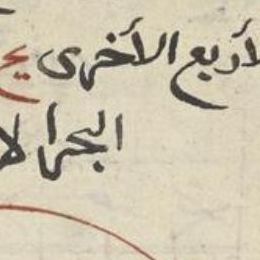 لأربع الأخرى يح
البحر الا